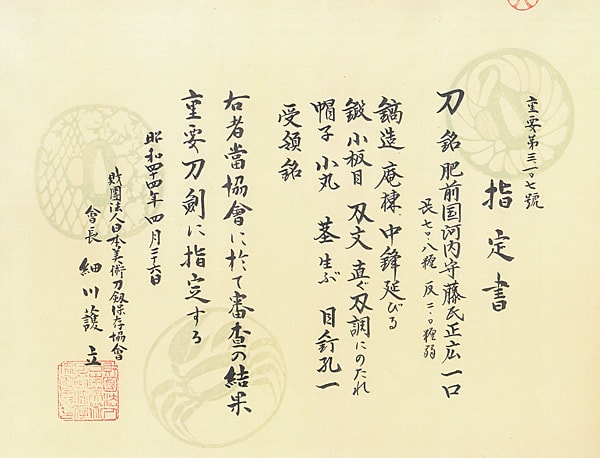 重要第三一〇七號
指定書
刀 銘 肥前国河内守藤氏正広 一口
長七〇・八糎 反二・〇糎弱
鎬造 庵棟 中鋒延びる
鍛 小板目 刃文 直ぐ刃調にのたれ
帽子 小丸 茎 生ぶ 目釘孔一
受領銘
右者當協會に於て審査の結果
重要刀劍に指定する
昭和四十四年四月二十六日
財團法人日本美術刀劔保存協會
會長 細川護立